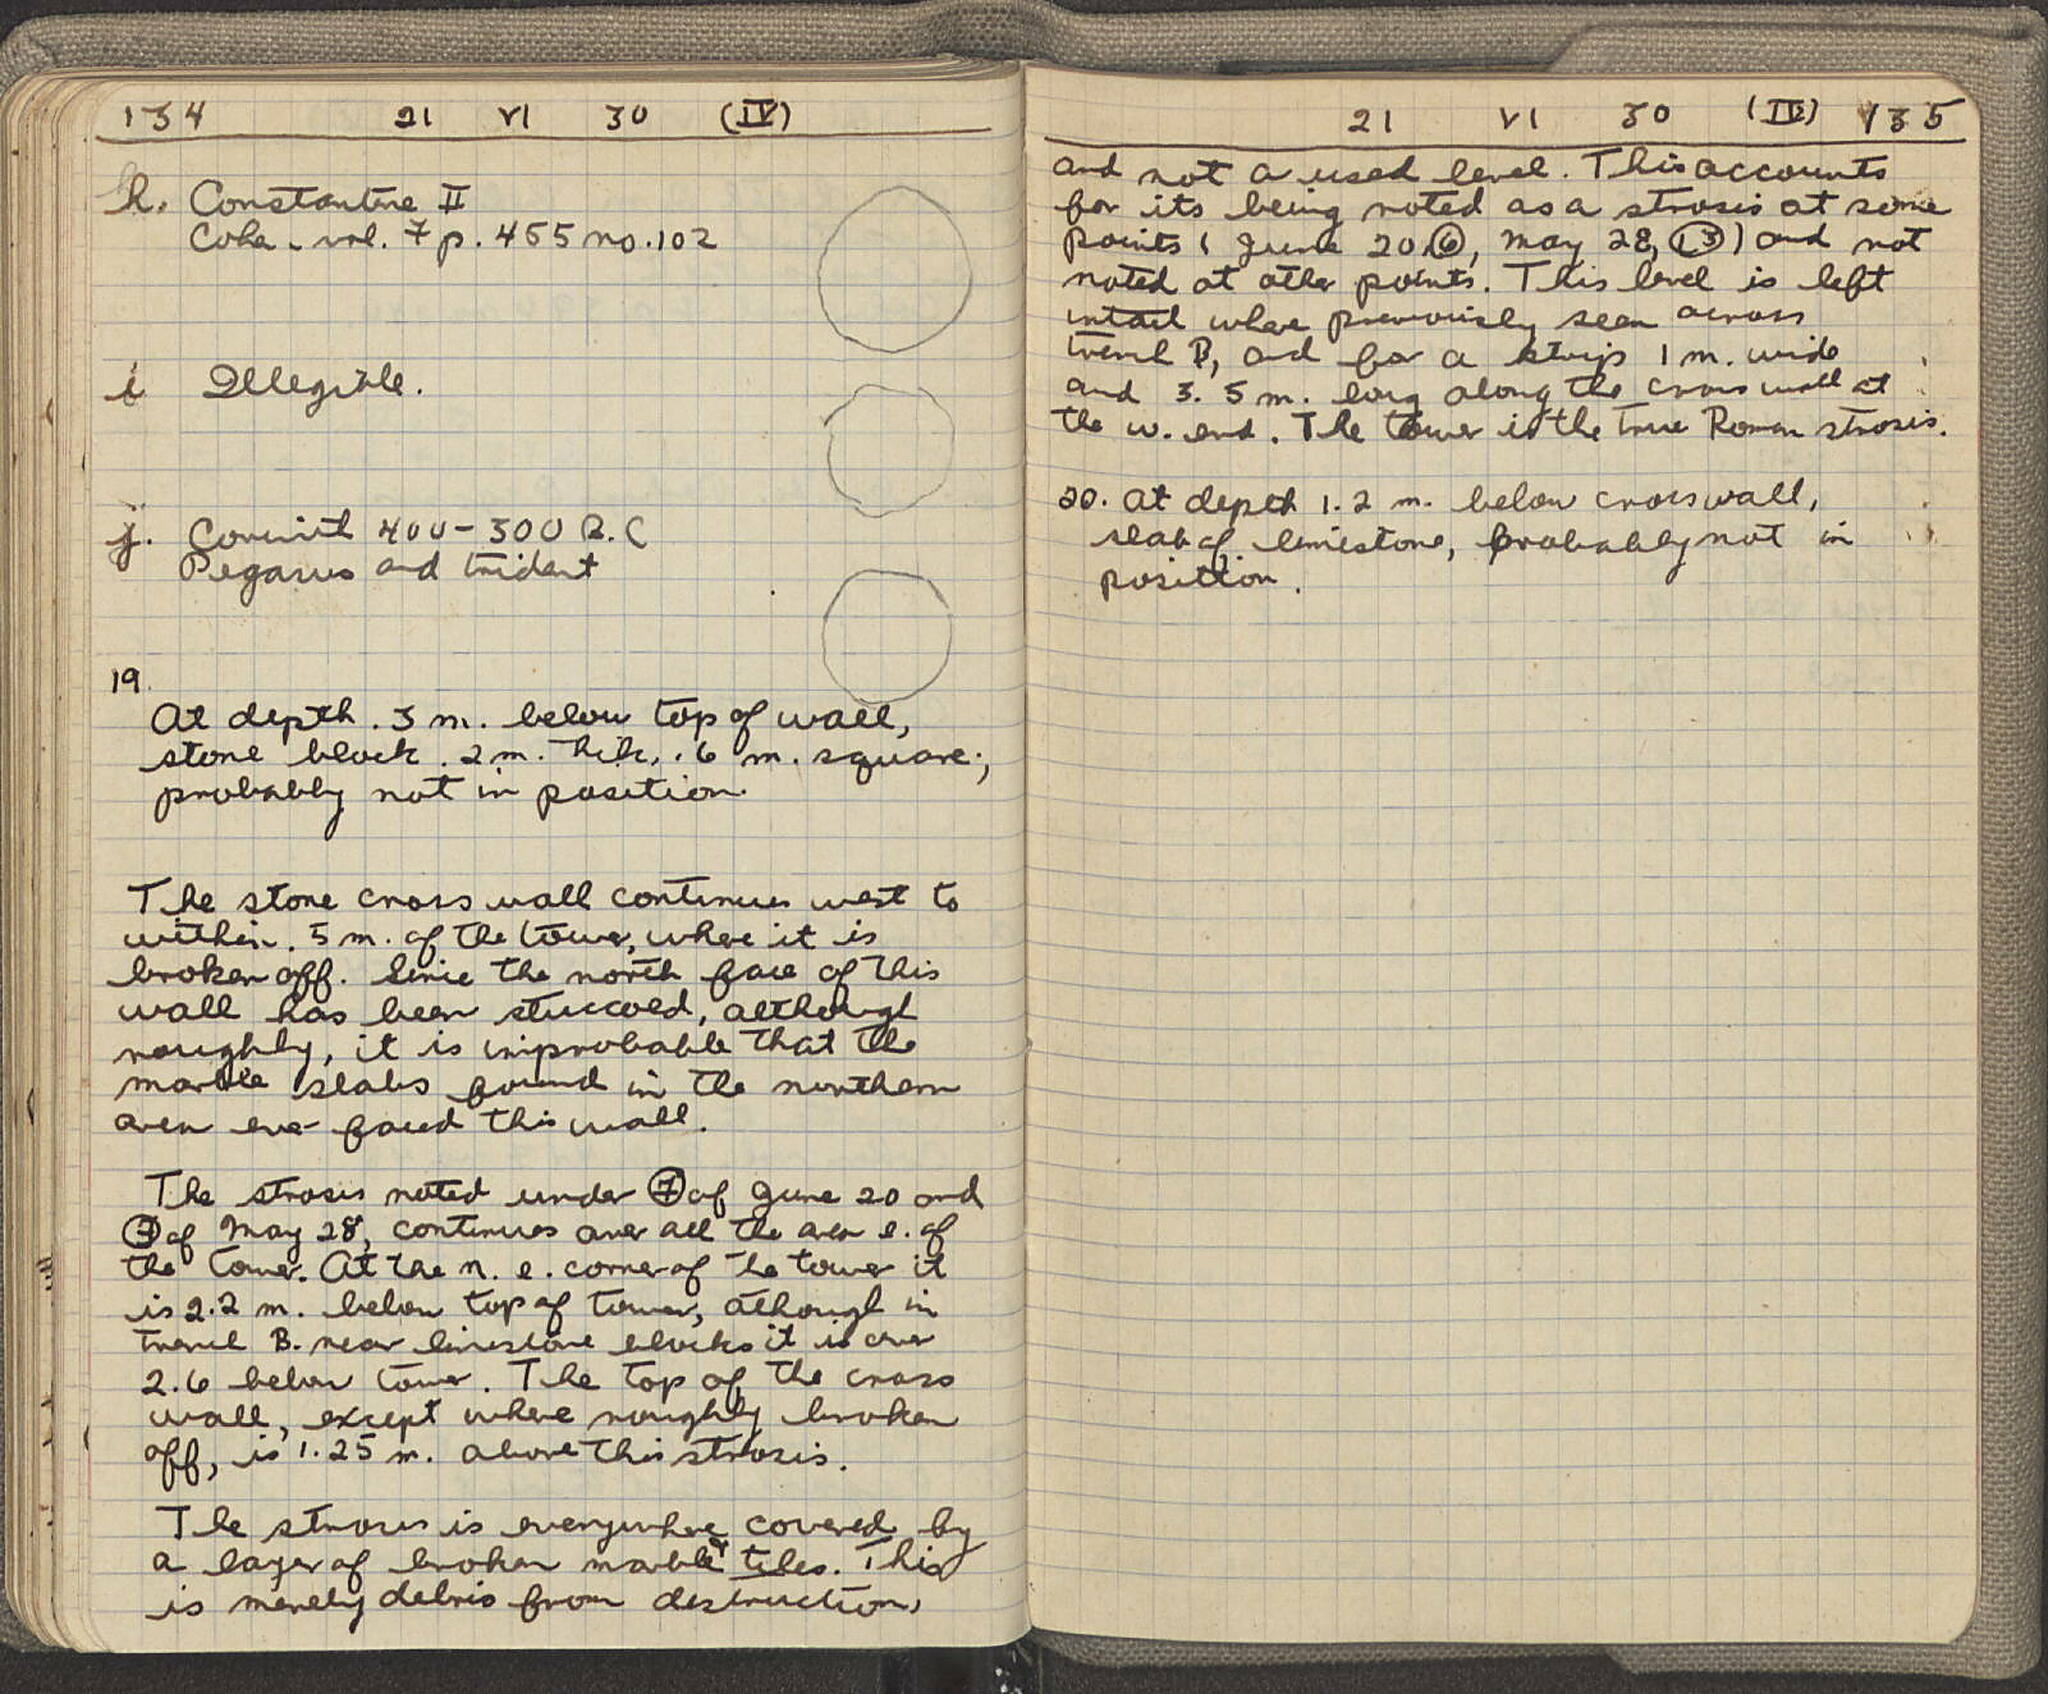 134 21 VI 30 (IV)
h. Constantine II
Cohen vol. 7 p. 455 no. 102
i Illegible.
j. Corinth 400-300 B.C
Pegasus and trident
19.
At depth .3 m. below top of wall,
stone block .2 m. thik, .6 m. square;
probably not in position.
The stone cross wall continues west to
within .5 m. of the tower, where it is
broken off. Since the north face of this
wall has been stuccoed, although
roughly, it is improbable that the
marble slabs found in the northern
area ever faced this wall.
The strosis noted under ⑦ of June 20 and
of May 28, continues over all the area e. of
the tower. At the n. e. corner of the tower it
is 2.2 m. below top of tower, although in
trench B. near limestone blocks it is over
2.6 below tower. The top of the cross
wall, except where roughly broken
off, is 1.25 m. above this strosis.
The strosis is everywhere covered by
a layer of broken marble & tiles. This
is merely debris from destruction,
21 VI 30 (IV) 135
and not a used level. This accounts
for its being noted as a strosis at some
points ( June 20 ⑥, May 28, ⑬) and not
noted at other points. This level is left
intact where previously seen across
trench B, and for a strip 1 m. wide
and 3.5 m. long along the cross wall at
the w. end. The lower is the true Roman strosis.
20. At depth 1.2 m. below cross wall,
slab of limestone, probably not in
position.